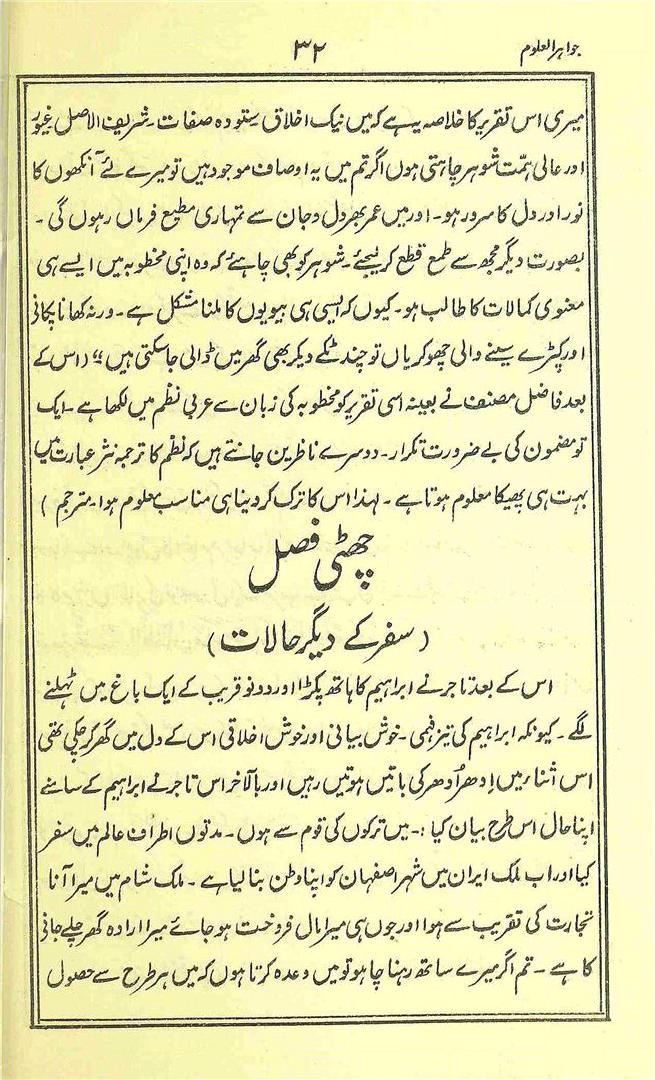 جواہر العلوم
۳۲
میری اس تقریر کا خلاصہ یہ ہے کہ میں نیک اخلاق ستودہ صفات۔ شریف الاصل غیور
اور عالی ہمّت شوہر چاہتی ہوں اگر تم میں یہ اوصاف موجود ہیں تو میرے لئے آنکھوں کا
نور اور دل کا سرور ہو۔ اور میں عمر بھر دل و جان سے تمہاری مطیع فرماں رہوں گی۔
بصورت دیگر مجھ سے طمع قطع کر لیجئے۔ شوہر کو بھی چاہئے کہ وہ اپنی مخطوبہ میں ایسے ہی
معنوی کمالات کا طالب ہو۔ کیوں کہ ایسی ہی بیویوں کا ملنا مشکل ہے۔ ورنہ کھانا پکانی
اور کپڑے سینے والی چھوکریاں تو چند ٹکے دیکر بھی گھر میں ڈالی جا سکتی ہیں“ (اس کے
بعد فاضل مصنف نے بعینہ اسی تقریر کو مخطوبہ کی زبان سے عربی نظم میں لکھا ہے۔ ایک
تو مضمون کی بے ضرورت تکرار۔ دوسرے ناظرین جانتے ہیں کہ نظم کا ترجمہ نثر عبارت میں
بہت ہی پھیکا معلوم ہوتا ہے۔ لہذا اس کا ترک کر دینا ہی مناسب معلوم ہوا۔ مترجم)
چھٹی فصل
(سفر کے دیگر حالات)
اس کے بعد تاجر نے ابراہیم کا ہاتھ پکڑا اور دونو قریب کے ایک باغ میں ٹہلنے
لگے۔ کیونکہ ابراہیم کی تیز فہمی۔ خوش بیانی اور خوش اخلاقی اس کے دل میں گھر کر چکی تھی
اس اثناء میں اِدھر اُدھر کی باتیں ہوتیں رہیں اور بالآخر اس تاجر نے ابراہیم کے سامنے
اپنا حال اس طرح بیان کیا:۔ میں ترکوں کی قوم سے ہوں۔ مدتوں اطراف عالم میں سفر
کیا اور اب ملک ایران میں شہر اصفہان کو اپنا وطن بنا لیا ہے۔ ملک شام میں میرا آنا
تجارت کی تقریب سے ہوا اور جوں ہی میرا مال فروخت ہو جائے میرا ارادہ گھر چلے جانی
کا ہے۔ تم اگر میرے ساتھ رہنا چاہو تو میں وعدہ کرتا ہوں کہ میں ہر طرح سے حصول